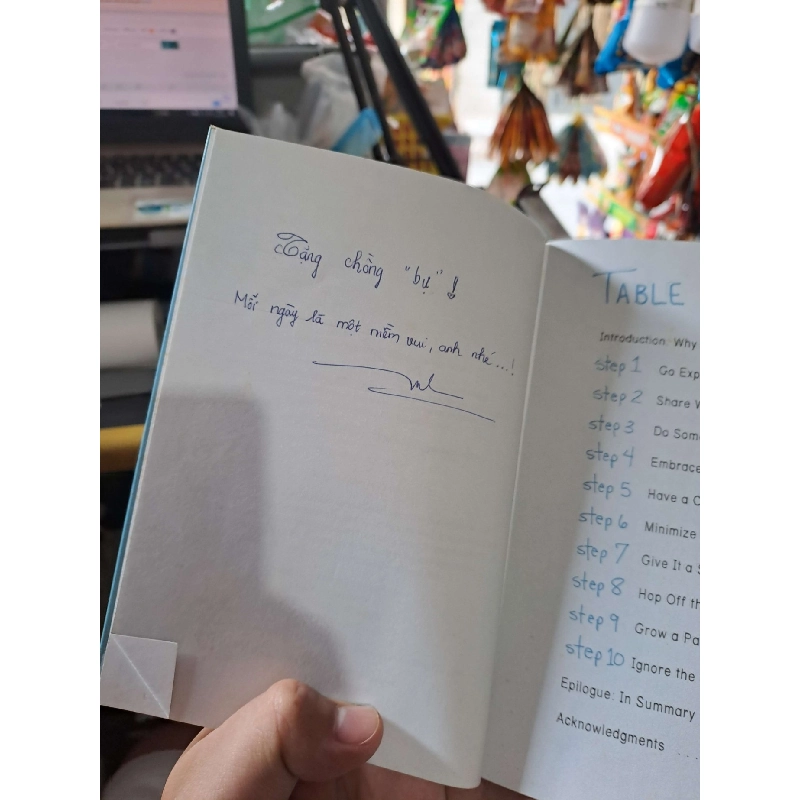 Tặng chồng "bự" !
Mỗi ngày là một niềm vui, anh nhé...!
TABLE
Introduction: Why
step 1 Go Exp
step 2 Share W
step 3 Do Som
step 4 Embrace
step 5 Have a C
step 6 Minimize
step 7 Give It a S
step 8 Hop Off th
step 9 Grow a Pa
step 10 Ignore the
Epilogue: In Summary
Acknowledgments ....